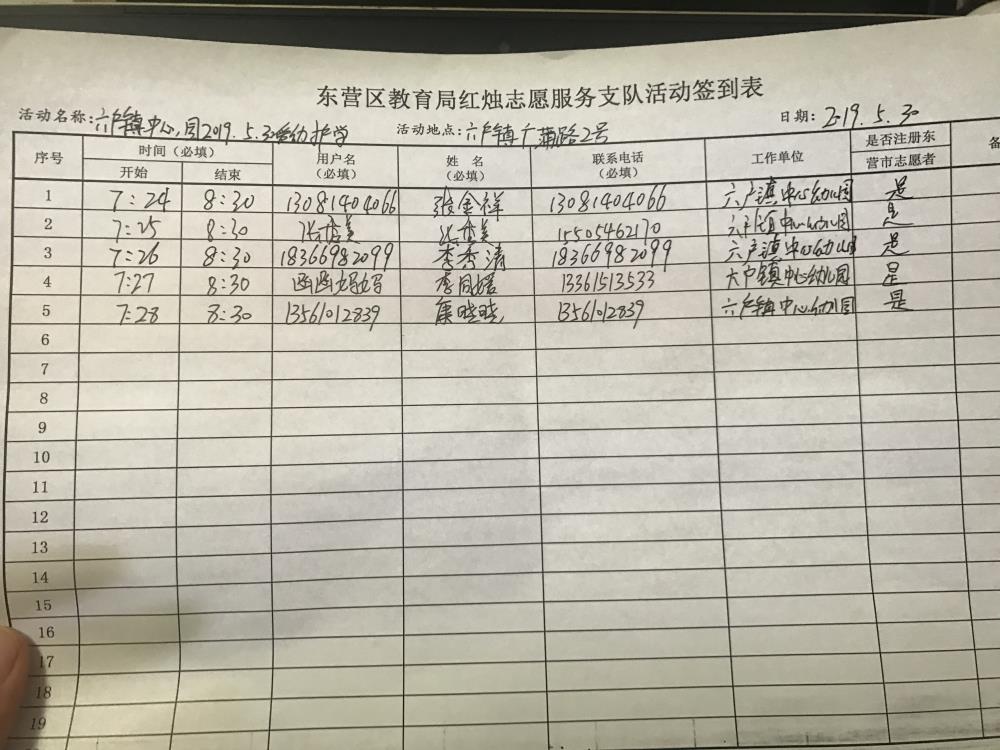 东营区教育局红烛志愿服务支队活动签到表
活动名称:六户镇中心园2019.5.30爱幼护学 活动地点:六户镇广蒲路2号 日期:2019.5.30
序号 时间（必填） 用户名（必填） 姓名（必填） 联系电话（必填） 工作单位 是否注册东营市志愿者 备
开始 结束
1 7:24 8:30 13081404066 张金祥 13081404066 六户镇中心幼儿园 是
2 7:25 8:30 美 美 15505462170 六户镇中心幼儿园 是
3 7:26 8:30 18366982099 李秀清 18366982099 六户镇中心幼儿园 是
4 7:27 8:30 函函妈妈 李媛 13361513533 六户镇中心幼儿园 是
5 7:28 8:30 13561012839 康晓晓 13561012839 六户镇中心幼儿园 是
6
7
8
9
10
11
12
13
14
15
16
17
18
19